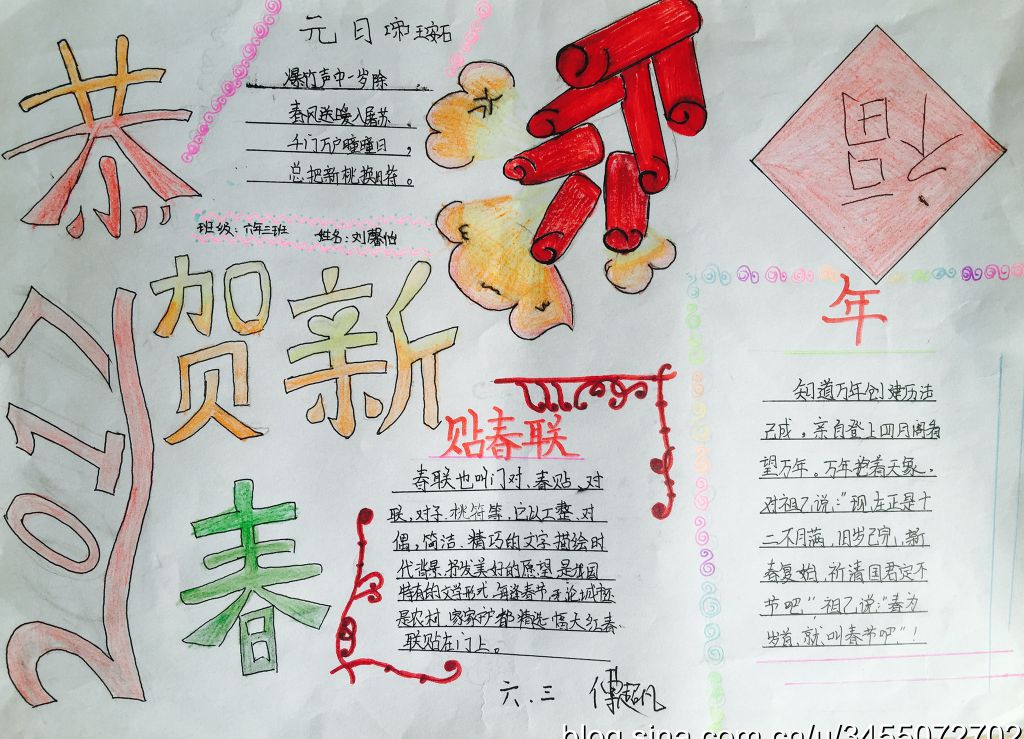 恭
贺新
春
2017
元日 王安石
爆竹声中一岁除
春风送暖入屠苏
千门万户曈曈日,
总把新桃换旧符。
班级:六年三班 姓名:刘馨怡
福
年
知道万年创建历法
已成,亲自登上日月阁看
望万年。万年指着天象,
对祖乙说:"现在正是十
二个月满,旧岁已完,新
春复始,祈请国君定个
节吧"祖乙说:"春为
岁首,就叫春节吧"!
贴春联
春联也叫门对、春贴、对
联,对子,桃符等,它以工整、对
偶,简洁、精巧的文字描绘时
代背景,抒发美好的愿望,是我国
特有的文学形式,每逢春节,无论城市还
是农村,家家户户都精选一幅大红春
联贴在门上。
六.三
blog.sina.com.cn/u/3455072702